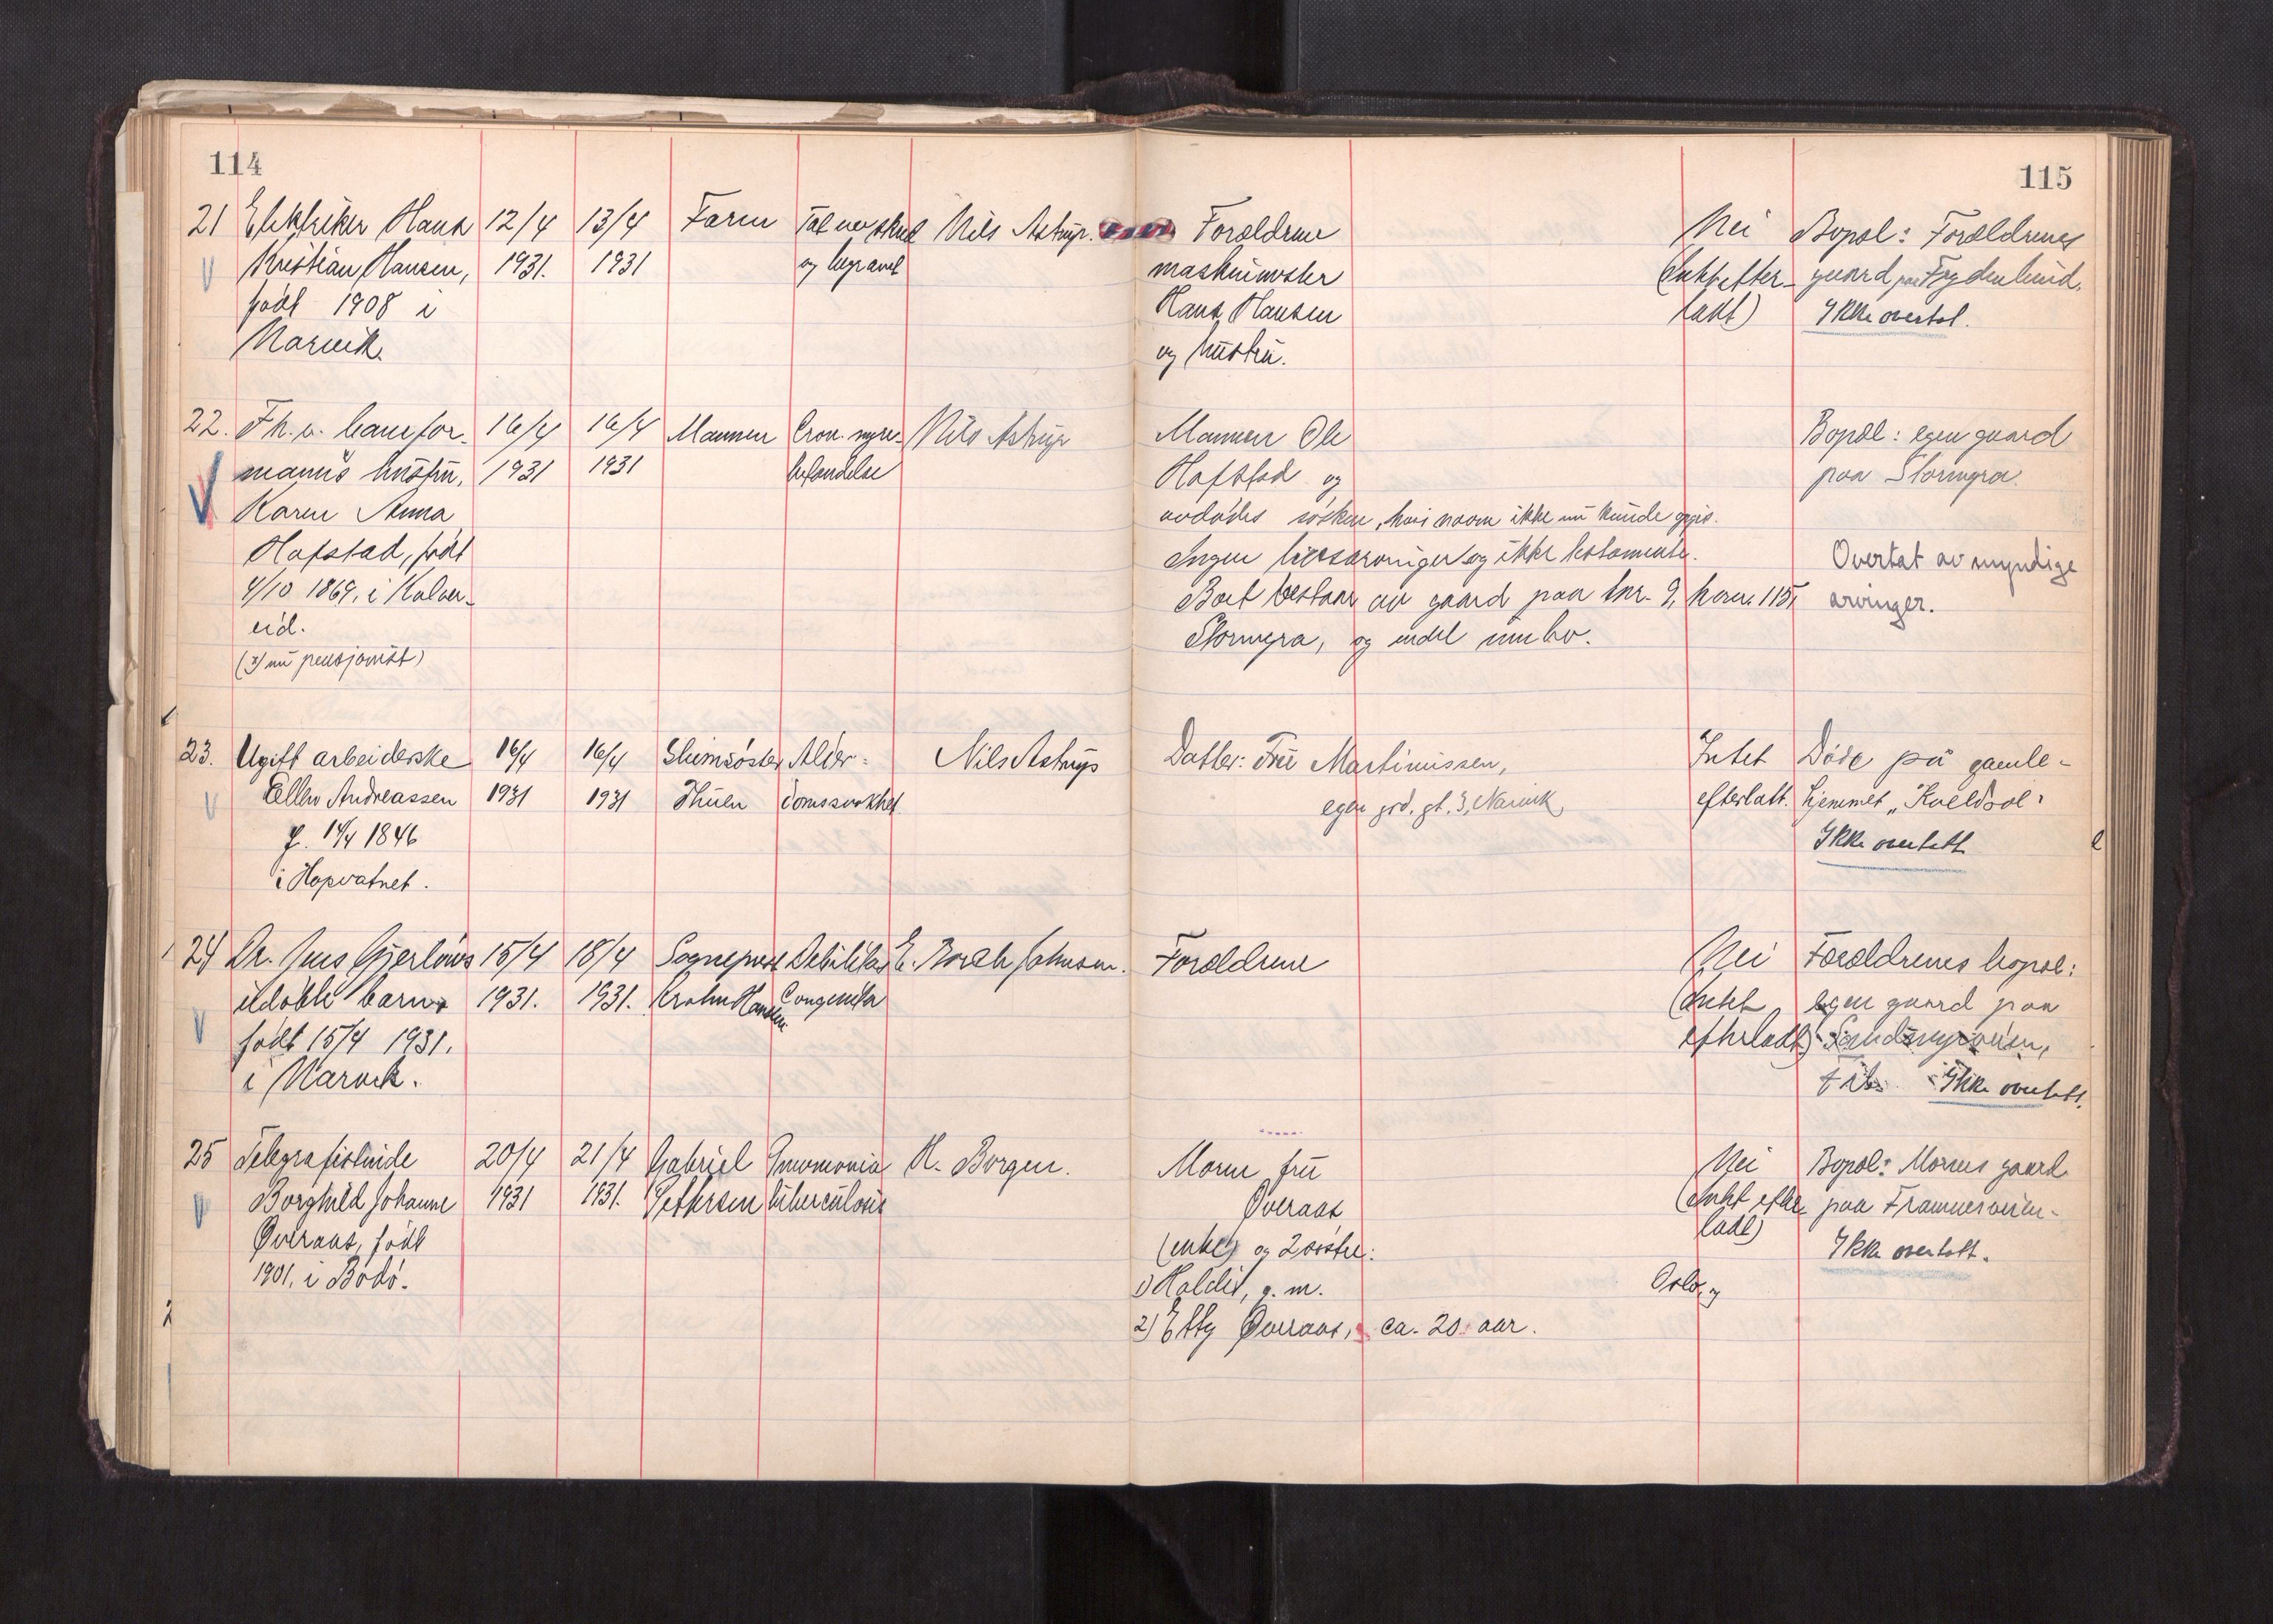 114
115
21 Elektriker Hans 12/4 13/4 Faren Tat av skred Nils Astrup. Forældrene Nei Bopæl: Forældrenes
Kristian Hansen, 1931. 1931 og begravet maskinmester (Intet efter- gaard paa Frydenlund.
født 1908 i Hans Hansen latt) Ikke overtat.
Narvik. og hustru.
22. Fh. v. banefor- 16/4 16/4 Mannen Cron. nyre- Nils Astrup Mannen Ole Bopæl: egen gaard
manns hustru, 1931 1931 betændelse Hafstad og paa Stormyra.
Karen Anna avdødes søsken, hvis navn ikke nu kunde opgis.
Hafstad, født Ingen livsarvinger og ikke testamente. Overtat av myndige
4/10 1869, i Kolver- Boet bestaar av gaard paa tnr. 9, kvm. 115, arvinger.
eid. Stormyra, og endel innbo.
(nu pensjonist)
23. Ugift arbeiderske 16/4 16/4 Sluimsøster Alder- Nils Astrup Datter: Fru Martinussen, Intet Døde på gamle-
Ellen Andreassen 1931 1931 Thuen domssvakhet egen grd. gt. 3, Narvik, efterlatt. hjemmet "Kveldsol"
f. 14/4 1846 Ikke overtatt
i Hopvatnet.
24 Dr. Jens Gjerløws 15/4 18/4 Sogneprest Debilitas E. Borch Johnsen. Forældrene Nei Forældrenes bopæl:
udøbte barn 1931. 1931. Krohn Hansen Congenita (Intet egen gaard paa
født 15/4 1931. efterladt)
i Narvik. Ikke overtatt.
25 Telegrafistinde 20/4 21/4 Gabriel Pneumonia H. Borgen. Moren fru Nei Bopæl: Morens gaard
Borghild Johanne 1931 1931. Pettersen tuberculosis Øveraas, (Intet efter- paa Framnesveien-
Øveraas, født (enke) og 2 søstre: ladt) Ikke overtatt.
1901. i Bodø. 1) Haldis, g. m. Oslo, og
2) Etty Øveraas, ca. 20 aar.